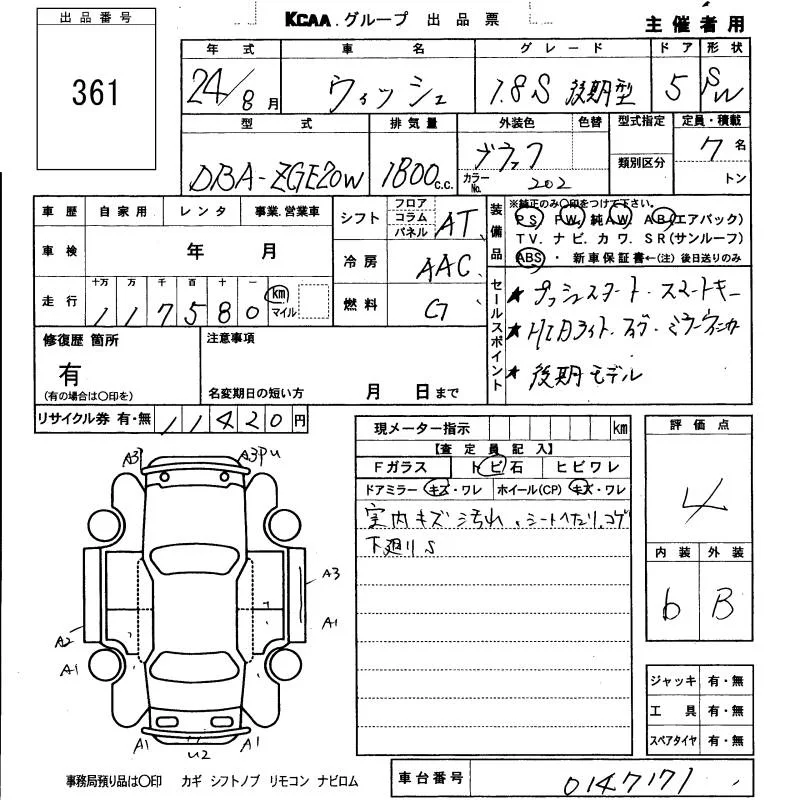 出品番号
361
KCAA.グループ 出品票
主催者用
年式 車名 グレード ドア 形状
24/8月 ウィッシュ 1.8S 後期型 5 SW
型式 排気量 外装色 色替 型式指定 定員・積載
DBA-ZGE20W 1800c.c. 202 7名
カラーNo. 類別区分 トン
車歴 自家用 レンタ 事業.営業車
シフト フロア コラム パネル AT
装備品 ※純正のみ○印をつけて下さい。
PS PW. 純AW AB(エアバック)
TV. ナビ. カワ. SR(サンルーフ)
ABS ・ 新車保証書←(注)後日送りのみ
車検 年 月
冷房 AAC
走行 十万 万 千 百 十 一
117580 km マイル
燃料 G
セールスポイント
★プッシュスタート・スマートキー
★HIDライト・フォグ・ミラーウィンカー
★後期モデル
修復歴 箇所
有
(有の場合は○印を)
注意事項
名変期日の短い方 月 日まで
リサイクル券 有・無 11420円
現メーター指示 km
【査定員記入】
Fガラス トビ石 ヒビワレ
ドアミラー キズ・ワレ ホイール(CP) キズ・ワレ
室内キズ汚れ、シートヘタリ、コゲ
下廻りS
評価点
4
内装 外装
b B
A3P A3PU
A3
A1
A2
A1
A1 U2 A1
ジャッキ 有・無
工具 有・無
スペアタイヤ 有・無
事務局預り品は○印 カギ シフトノブ リモコン ナビロム
車台番号 0147171